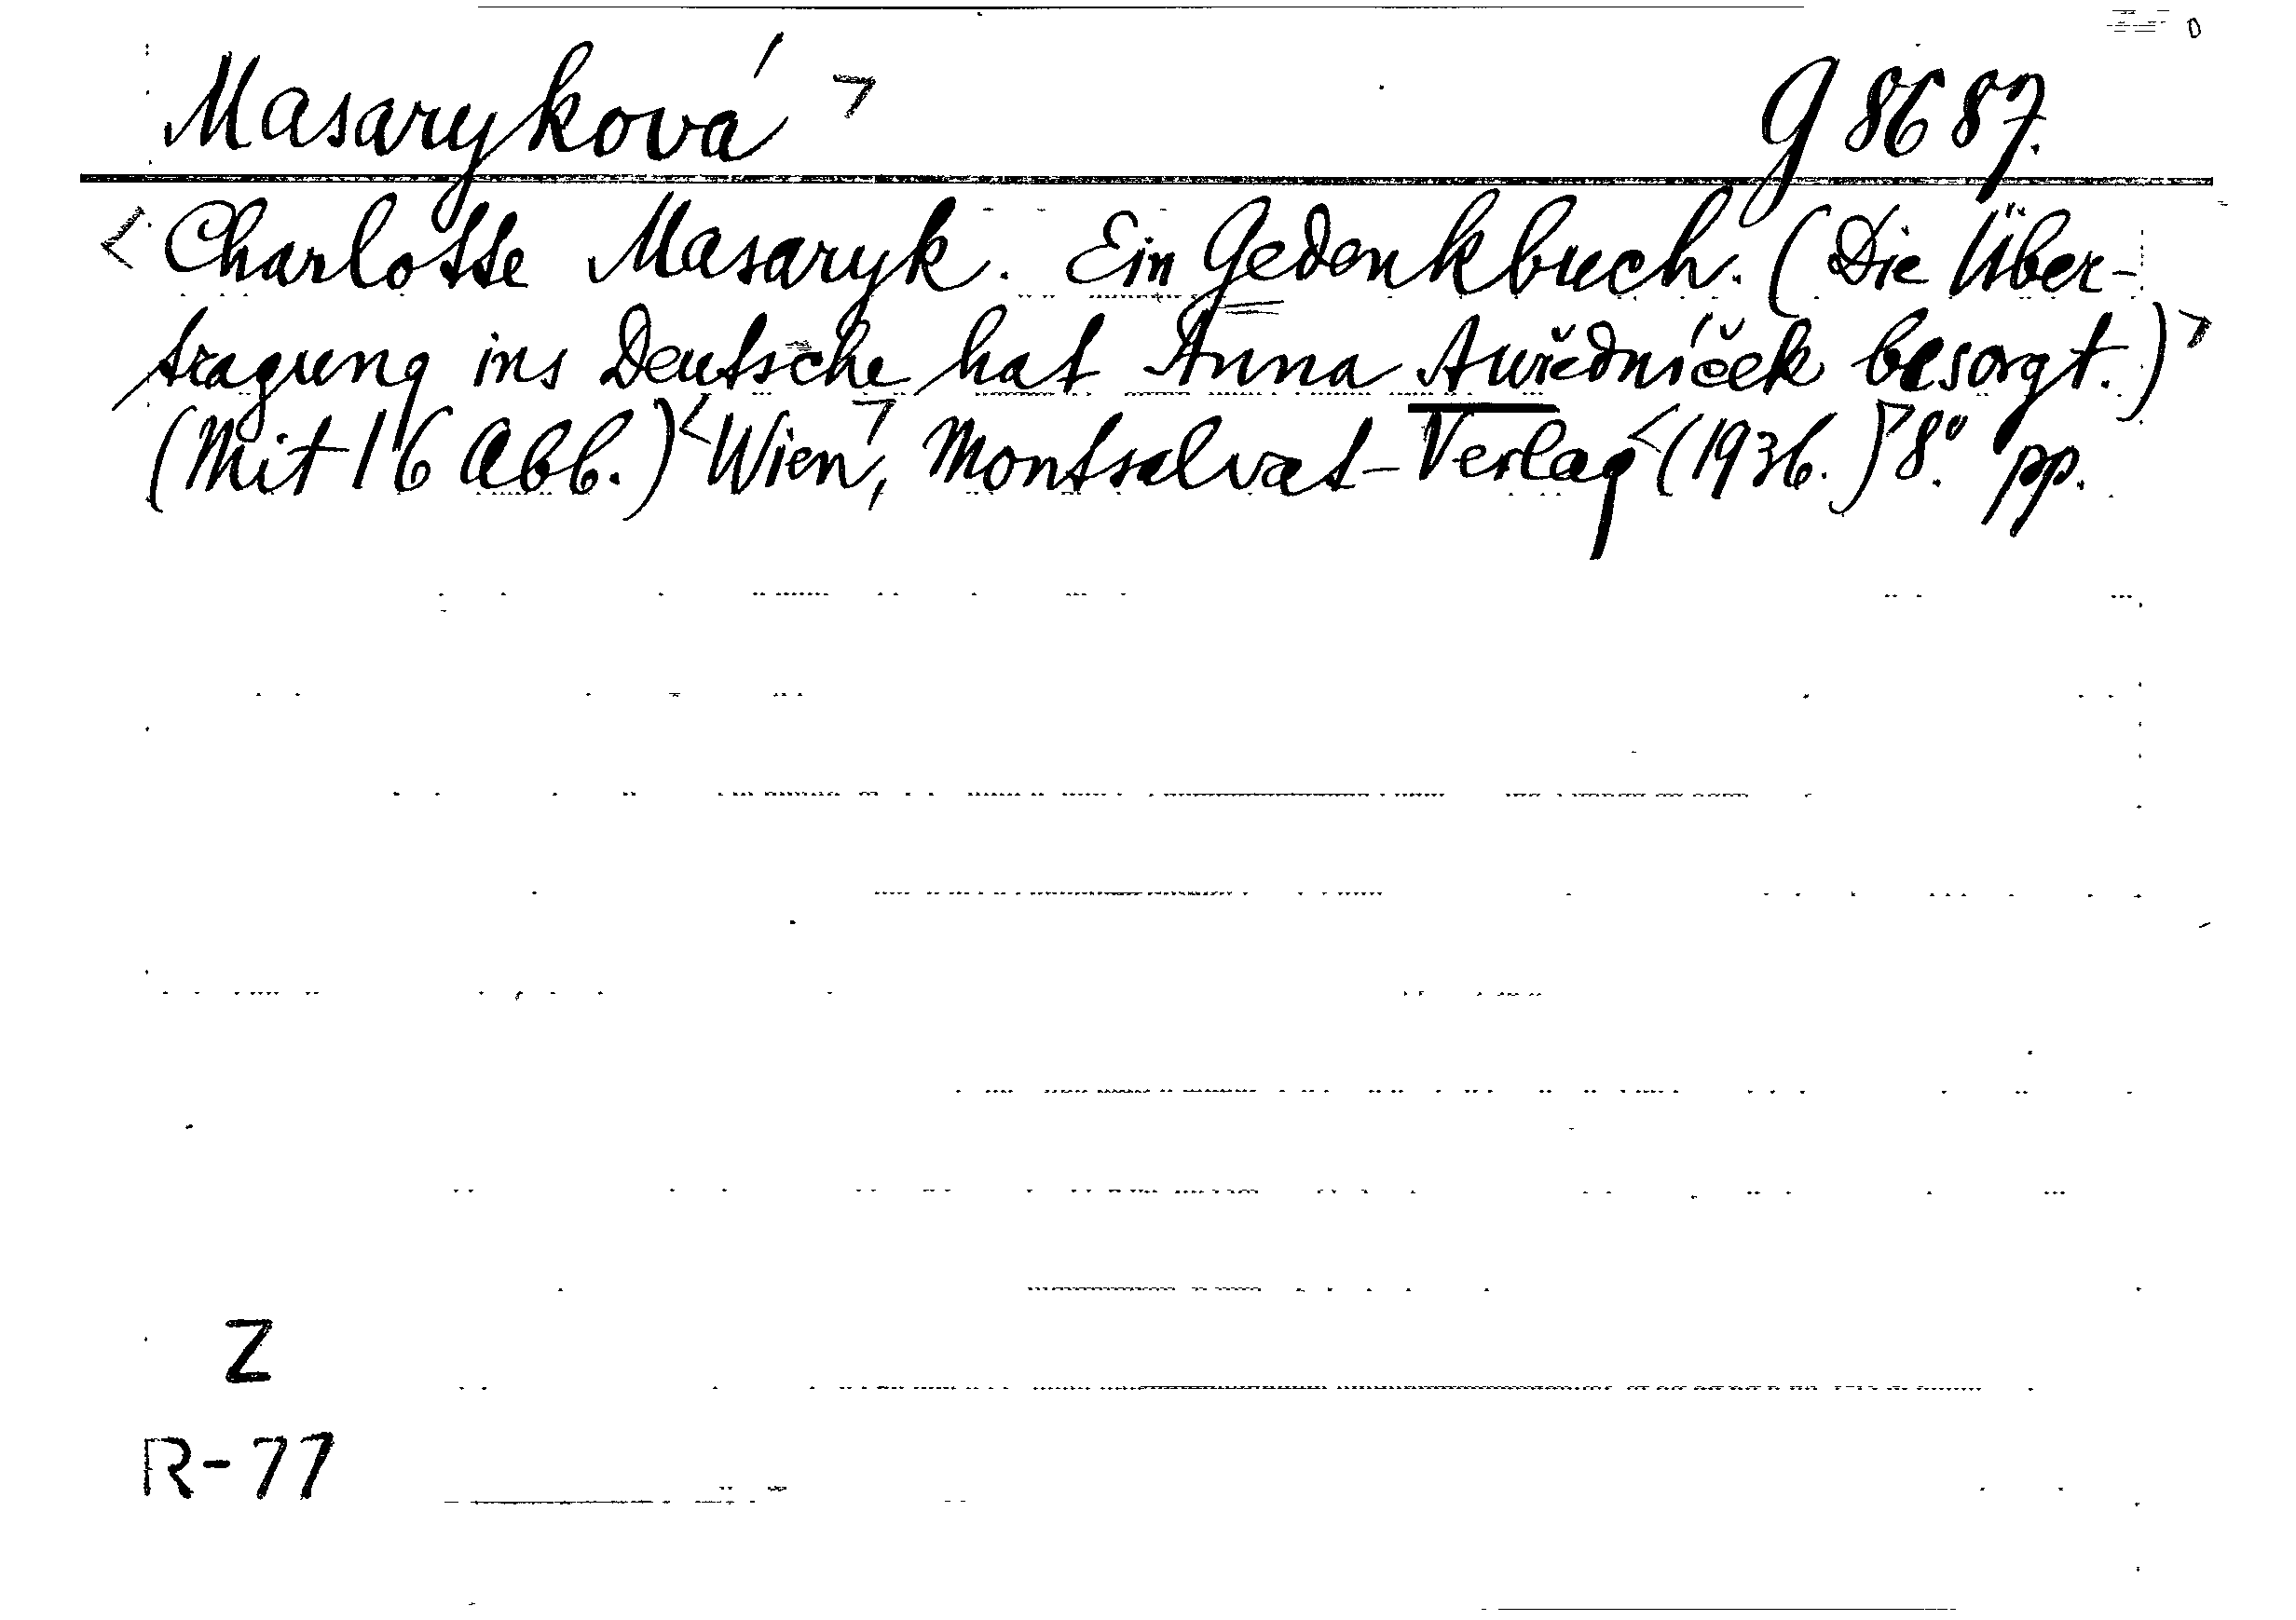 Masaryková ㄱ G 8687.
< Charlotte Masaryk. Ein Gedenkbuch. (Die Über-
tragung ins Deutsche hat Anna Auředníček besorgt.) ㄱ
(Mit 16 Abb.) < Wien ㄱ, Montsalvat-Verlag < (1936.) ㄱ 8.° pp.
Z
R-77